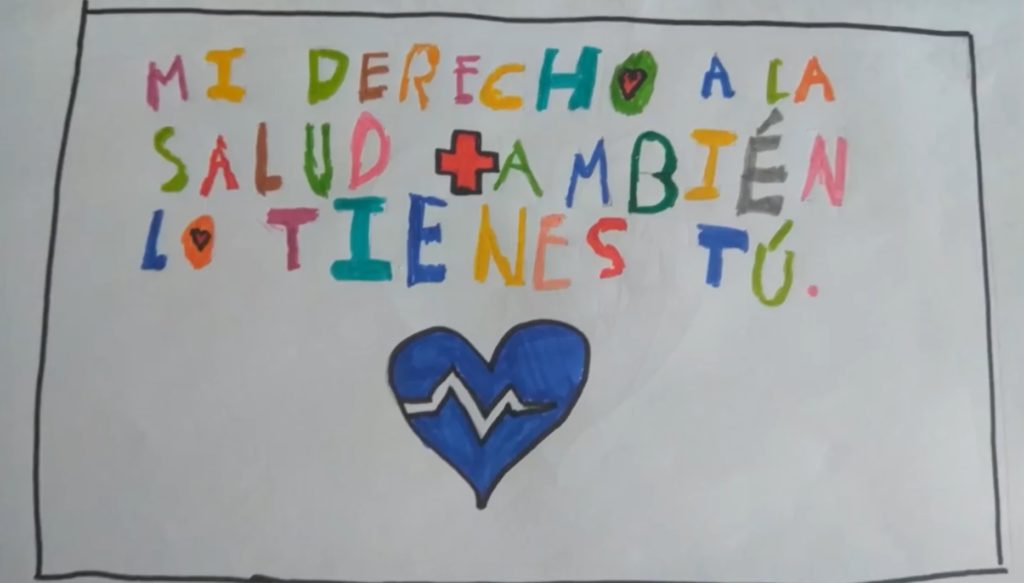 MI DERECHO A LA
SALUD TAMBIÉN
LO TIENES TÚ.